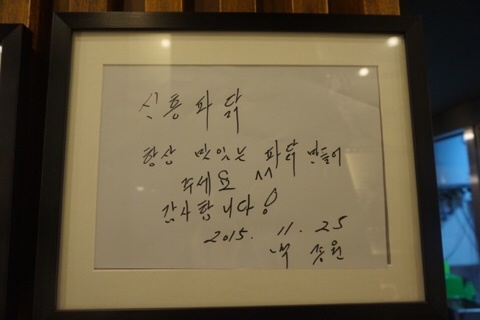 신흥파닭
항상 맛있는 파닭 만들어
주세요 ^^
감사합니다!
2015. 11. 25
백 종원